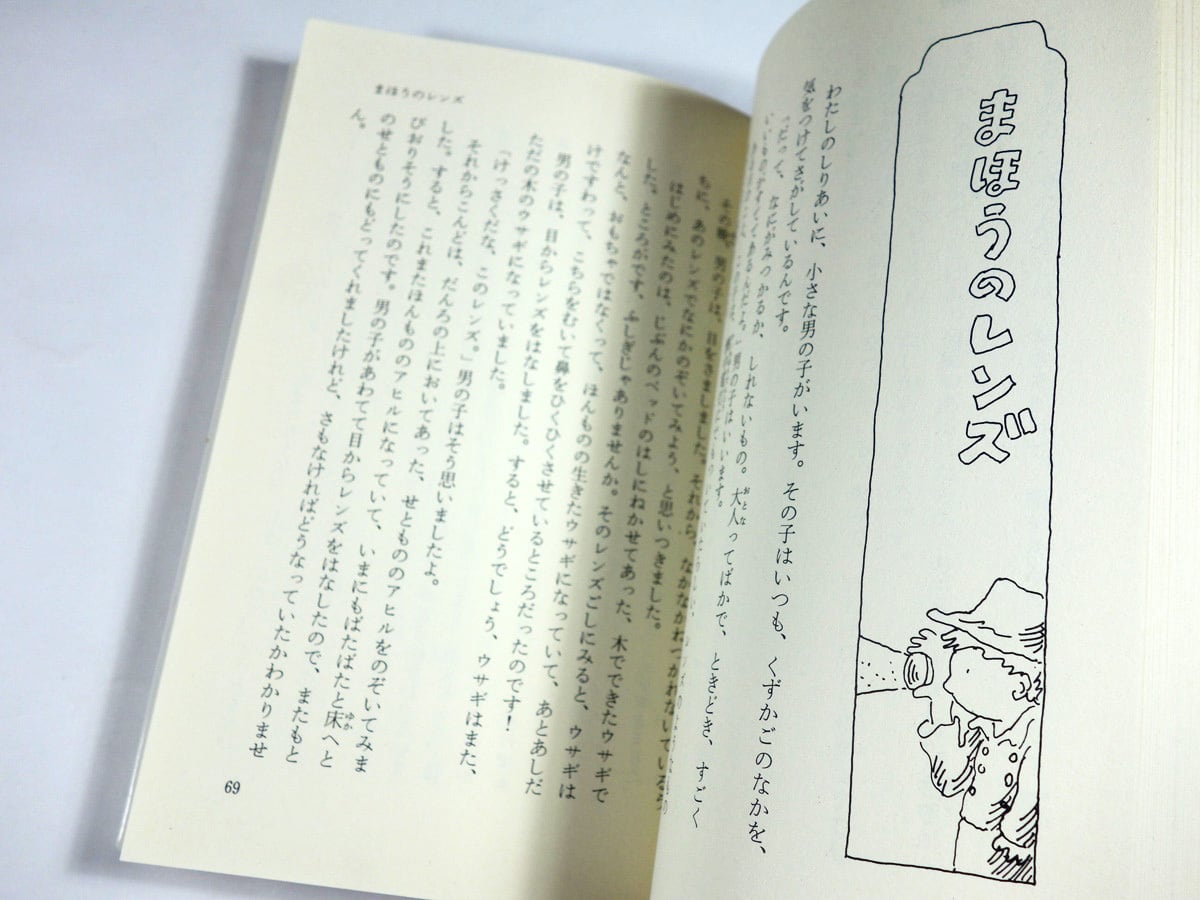 まほうのレンズ
わたしのしりあいに、小さな男の子がいます。その子はいつも、くずかごのなかを、
気をつけてさがしているんです。
「だって、なにがみつかるか、しれないもの。大人ってばかで、ときどき、すごく
おとな
男の子はいいます。
まほうのレンズ
その晩、男の子は、目をさましました。それから、なかなかねつかれないでいるう
ちに、あのレンズでなにかのぞいてみよう、と思いつきました。
はじめにみたのは、じぶんのベッドのはしにねかせてあった、木でできたウサギで
した。ところがです、ふしぎじゃありませんか。そのレンズごしにみると、ウサギは
なんと、おもちゃではなくって、ほんものの生きたウサギになっていて、あとあしだ
けですわって、こちらをむいて鼻をひくひくさせているところだったのです!
男の子は、目からレンズをはなしました。すると、どうでしょう、ウサギはまた、
ただの木のウサギになっていました。
「けっさくだな、このレンズ。」男の子はそう思いましたよ。
それからこんどは、だんろの上においてあった、せともののアヒルをのぞいてみま
した。すると、これまたほんもののアヒルになっていて、いまにもばたばたと床へと
ゆか
びおりそうにしたのです。男の子があわてて目からレンズをはなしたので、またもと
のせとものにもどってくれましたけれど、さもなければどうなっていたかわかりませ
ん。
69